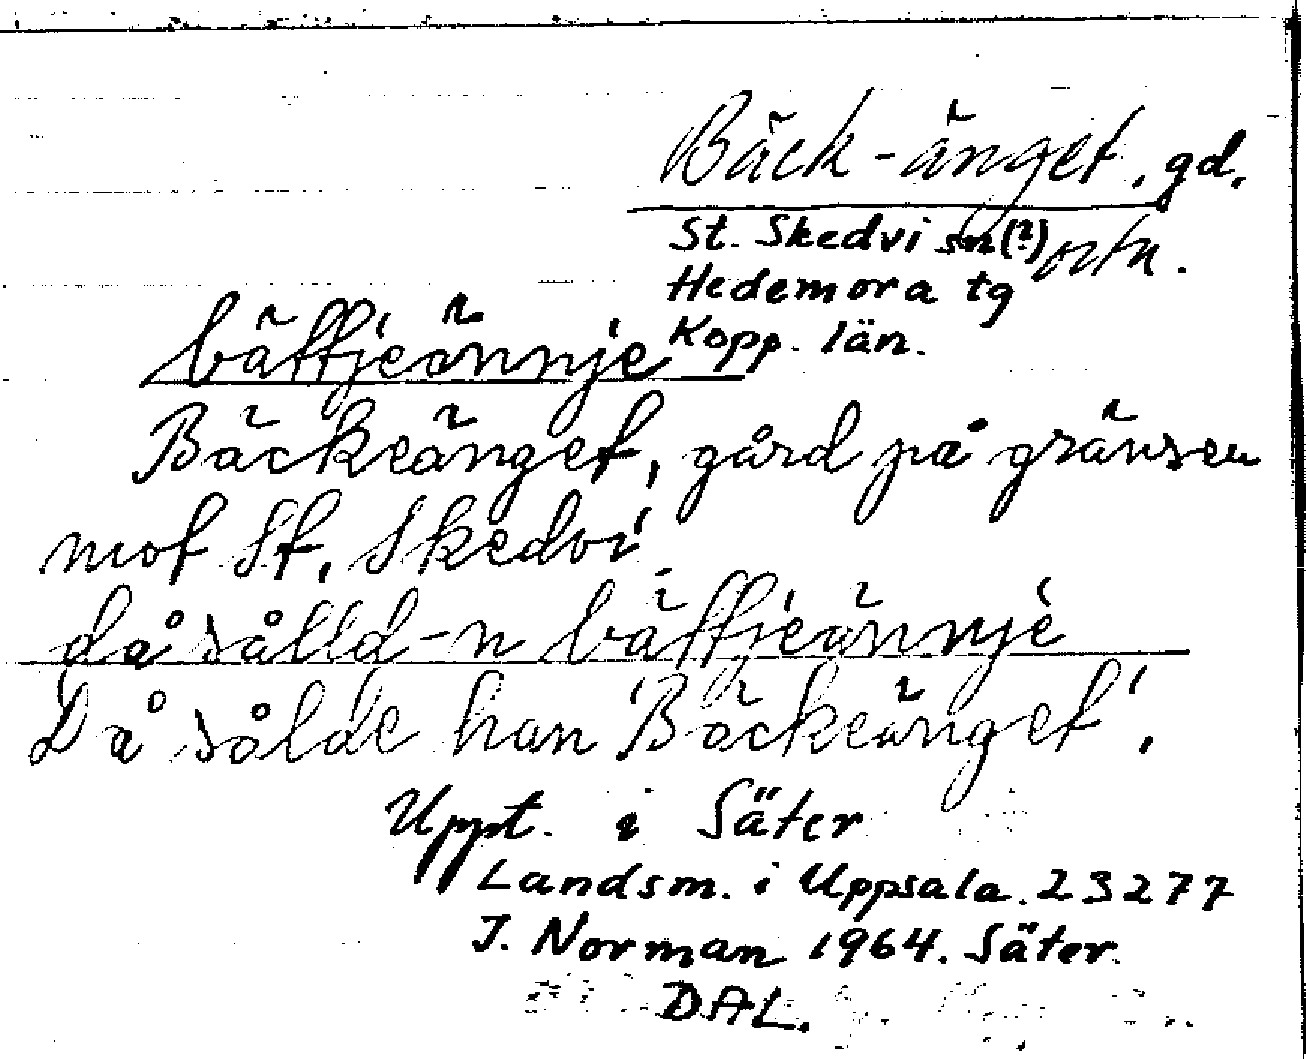 Bäck-änget, gd.
St. Skedvi sn(?) ortn.
Hedemora tg
Kopp. län.
bättjeännje
Bäckeänget, gård på gränsen
mot St. Skedvi
då sålld-n bättjeännje
Då sålde han 'Bäckeänget'.
Uppt. i Säter
Landsm. i Uppsala. 23277
J. Norman 1964. Säter.
DAL.